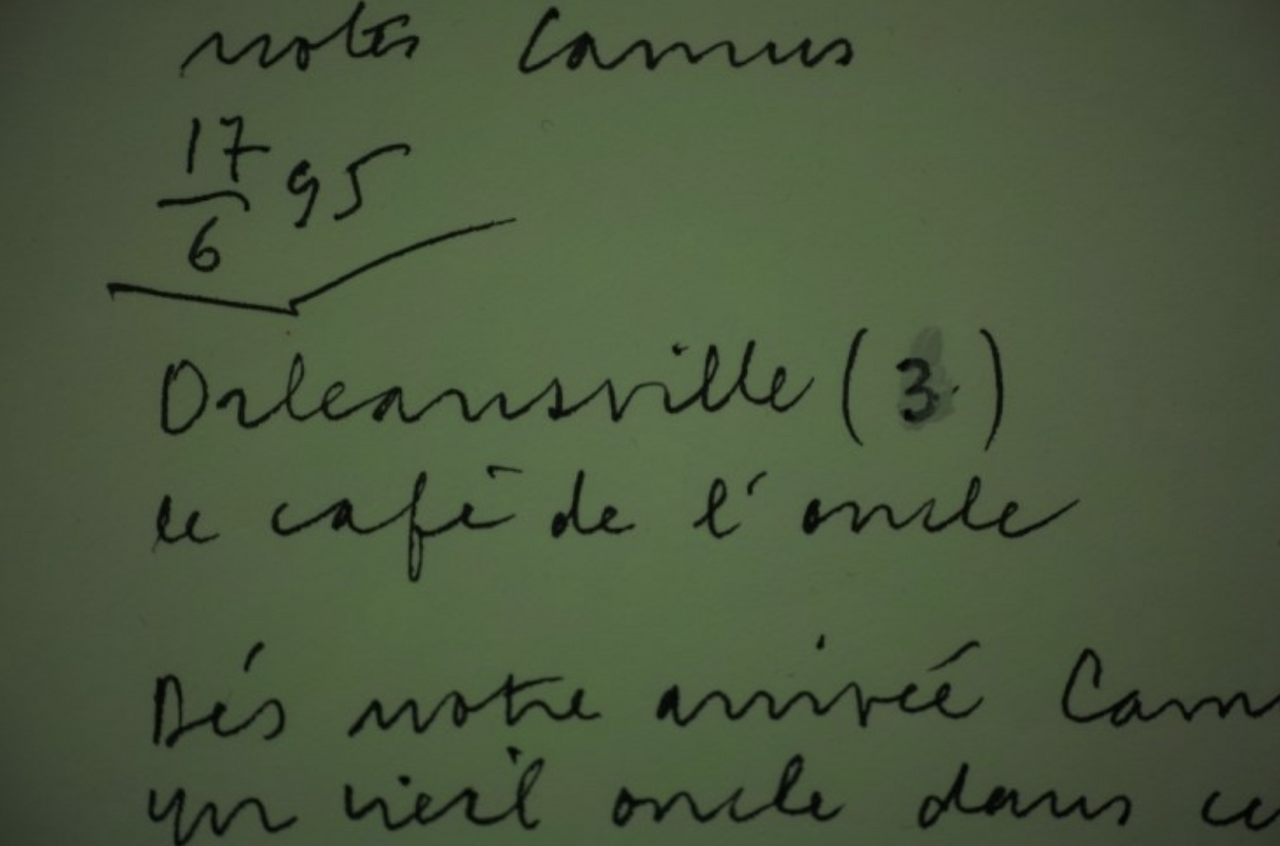 notes Camus
17/6 95
Orleansville (3)
le café de l'oncle
Dés notre arrivée Cam
un vieil oncle dans ce